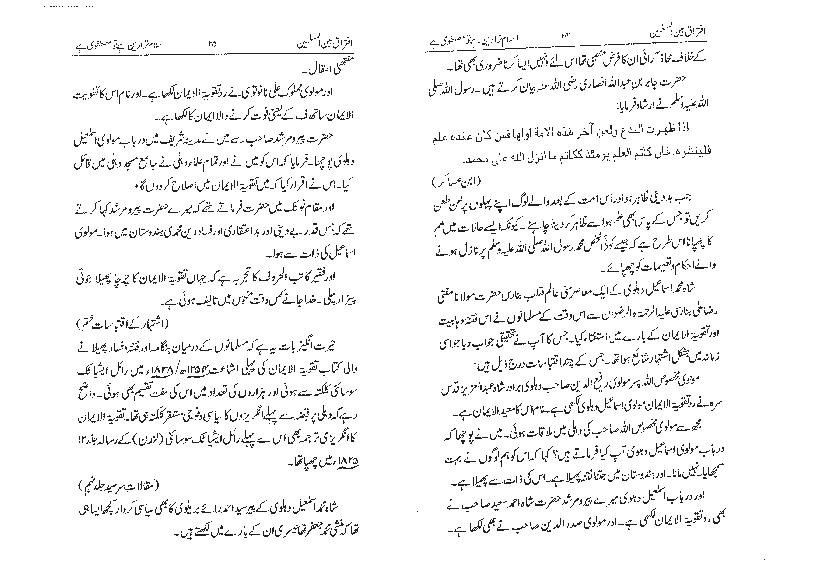 افتراق بین المسلمین
۲۴
اسلام ترا دین ہے تو مصطفوی ہے
کے خلاف محاذ آرائی ان کا فرض منصبی تھا اس لئے انہیں ایسا کرنا ضروری بھی تھا۔
حضرت جابر بن عبداللہ انصاری رضی اللہ عنہ بیان کرتے ہیں۔ رسول اللہ صلی
اللہ علیہ وسلم نے ارشاد فرمایا:
اذا ظهرت البدع ولعن آخر هذه الامة اولها فمن كان عنده علم
فلينشره، فان كاتم العلم يومئذ ككاتم ما انزل الله على محمد۔
(ابن عساکر)
جب بد دینی ظاہر ہو اور اس امت کے بعد والے لوگ اپنے پہلوں پر لعن طعن
کریں تو جس کے پاس بھی علم ہو اسے ظاہر کر دینا چاہئے۔ کیونکہ ایسے حالات میں علم
کا چھپانا اس طرح ہے کہ جیسے کوئی شخص محمد رسول اللہ صلی اللہ علیہ وسلم پر نازل ہونے
والے احکام و تعلیمات کو چھپائے۔
شاہ محمد اسماعیل دہلوی کے ایک معاصر سنی عالم قطب بنارس حضرت مولانا مفتی
رضا علی بنارسی علیہ الرحمۃ والرضوان سے اس وقت کے مسلمانوں نے اس فتنہ وہابیت
اور تقویۃ الایمان کے بارے میں استفتاء کیا۔ جس کا آپ نے تحقیقی جواب دیا جو اسی
زمانہ میں بشکل اشتہار شائع ہوا تھا۔ جس کے چند اقتباسات درج ذیل ہیں:
مولوی مخصوص اللہ پسر مولوی رفیع الدین صاحب دہلوی برادر شاہ عبدالعزیز قدس
سرہ نے رد تقویۃ الایمان مولوی اسماعیل دہلوی لکھی ہے۔ نام اس کا معید الایمان ہے۔
مجھ سے مولوی مخصوص اللہ صاحب کی دہلی میں ملاقات ہوئی۔ میں نے پوچھا کہ
در باب مولوی اسماعیل دہلوی آپ کیا فرماتے ہیں؟ کہا کہ اس کو ہم لوگوں نے بہت
سمجھایا۔ نہیں مانا۔ اور ہندوستان میں جتنا فتنہ پھیلا ہے۔ اس کی ذات سے پھیلا ہے۔
اور در باب اسمٰعیل دہلوی میرے پیرومرشد حضرت شاہ احمد سعید صاحب نے
بھی رد تقویۃ الایمان لکھی ہے۔ اور مولوی صدر الدین صاحب نے بھی لکھا ہے۔
افتراق بین المسلمین
۲۵
اسلام ترا دین ہے تو مصطفوی ہے
مقتضی انتقال۔
اور مولوی مملوک علی نانوتوی نے رد تقویۃ الایمان لکھا ہے۔ اور نام اس کا تفویت
الایمان ساتھ ف کے یعنی فوت کرنے والا ایمان کا لکھا ہے۔
حضرت پیرومرشد صاحب سے میں نے مدینہ شریف میں در باب مولوی اسمٰعیل
دہلوی پوچھا۔ فرمایا کہ اس کو میں نے اور تمام علماء دہلی نے جامع مسجد دہلی میں قائل
کیا۔ اس نے اقرار کیا کہ میں تقویۃ الایمان میں اصلاح کر دوں گا۔
اور مقام ٹونک میں حضرت فرماتے تھے کہ میرے حضرت پیرومرشد کہا کرتے
تھے کہ جس قدر بے دینی اور بد اعتقادی اور فساد دین محمدی ہندوستان میں ہوا۔ مولوی
اسماعیل کی ذات سے ہوا۔
اور فقیر کاتب الحروف کا تجربہ ہے کہ جہاں تقویۃ الایمان کا چرچا پھیلا ہوئی
بیزار ملی۔ خدا جانے کس وقت منحوس میں تالیف ہوئی ہے۔
(اشتہار کے اقتباسات ختم)
حیرت انگیز بات یہ ہے کہ مسلمانوں کے درمیان ہنگامہ اور فتنہ و فساد پھیلانے
والی کتاب تقویۃ الایمان کی پہلی اشاعت ۱۲۵۴ھ/۱۸۳۸ء میں رائل ایشیاٹک
سوسائٹی کلکتہ سے ہوئی اور ہزاروں کی تعداد میں اس کی مفت تقسیم بھی ہوئی۔ واضح
رہے کہ دہلی پر قبضہ سے پہلے انگریزوں کا سیاسی و فوجی مستقر کلکتہ ہی تھا۔ تقویۃ الایمان
کا انگریزی ترجمہ بھی اس سے پہلے رائل ایشیاٹک سوسائٹی (لندن) کے رسالہ جلد ۱۲
۱۸۲۵ء میں چھپا تھا۔
(مقالات سرسید جلد نہم)
شاہ محمد اسمٰعیل دہلوی کے پیر سید احمد رائے بریلوی کا بھی سیاسی کردار کچھ ایسا ہی
تھا کہ منشی محمد جعفر تھانیسری ان کے بارے میں لکھتے ہیں۔